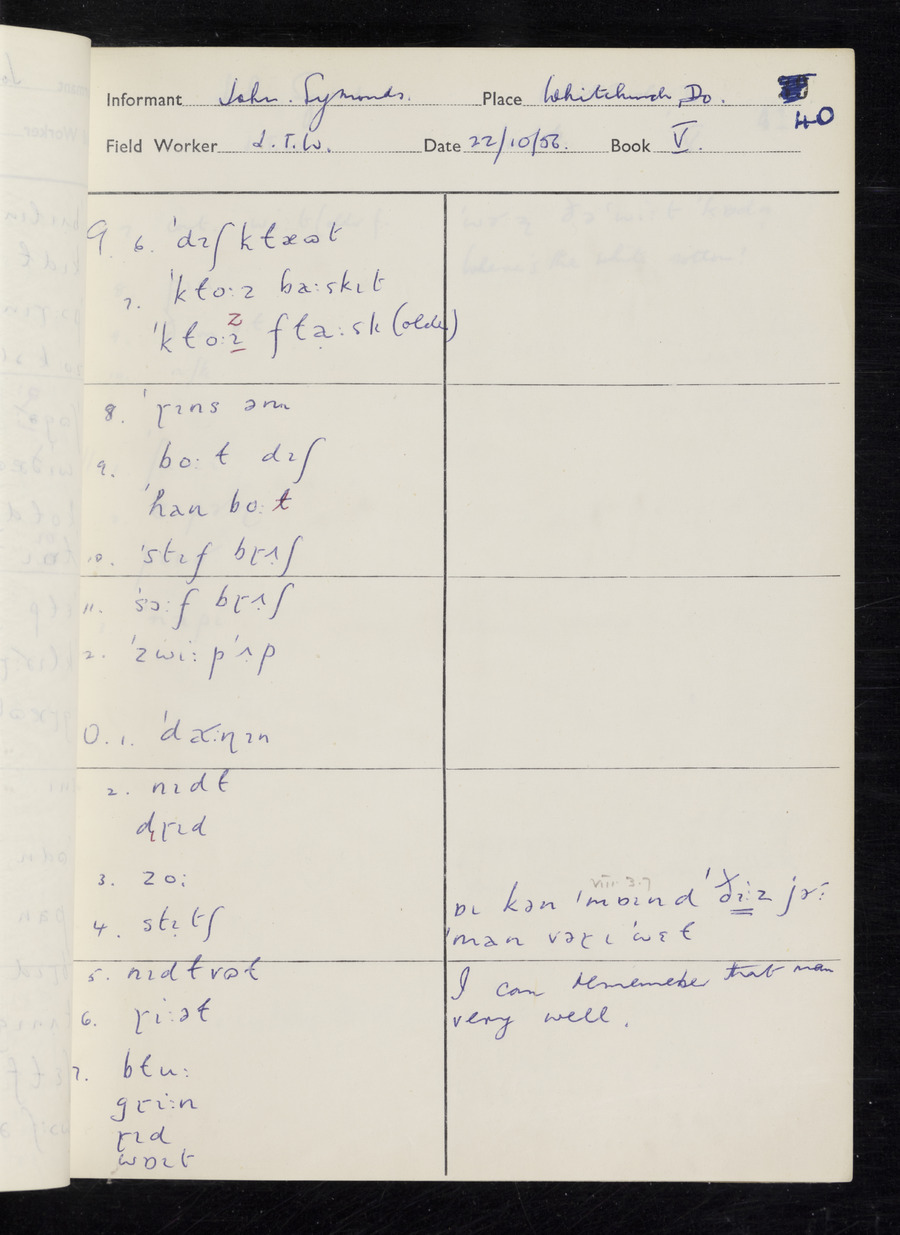 Informant John. Symonds. Place Whitchurch, Do.
40
Field Worker D.T.W. Date 22/10/56. Book V.
9. 6. ˈdɪʃ kɫæɷt
7. ˈkɫo:z ba:skɪt
ˈkɫo:z fɫa̤:sk (older)
z
8. ˈɽɪns əm
9. bo:ɫ dɪʃ
ˈhan bo:ɫ
10. ˈstɪf bɽʌʃ
11. ˈsɔ:f bɽʌʃ
2. ˈzwi:pˈʌp
0. 1. ˈdæ:nɪn
2. nɪdɫ
dɽɪd
3. zo:
4. stɪtʃ
5. nɪdɫvɷɫ
6. ɽi:əɫ
7. bɫu:
gɽi:n
ɽɪd
wɒɪt
VIII. 3.7
ɒɪ kən ˈmɒɪnd ˈði:z jə:
ˈman vəɽɪ ˈwɛɫ
I can rememeber that man
very well.